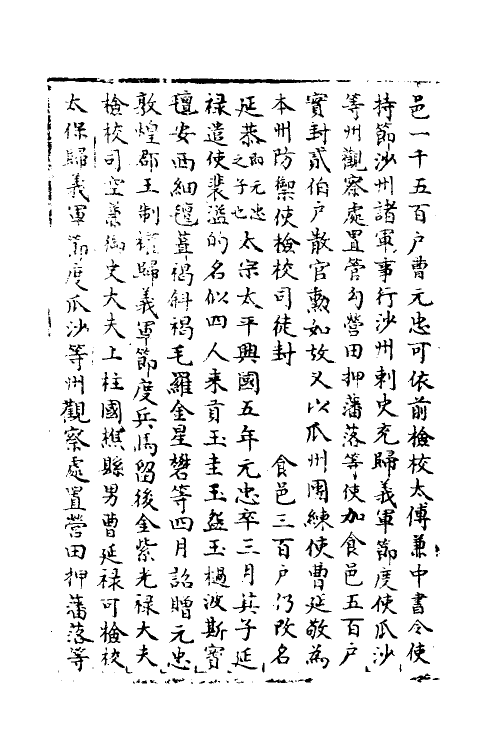 邑一千五百户曹元忠可依前檢校太傅兼中書令使
持節沙州諸軍事行沙州刺史充歸義軍節度使瓜沙
等州觀察處置管勾營田押蕃落等使加食邑五百户
實封貳伯户散官勳如故又以瓜州團練使曹延敬為
本州防禦使檢校司徒封 食邑三百户仍改名
延恭即元忠之子也太宗太平興國五年元忠卒三月其子延
禄遣使裴溢的名似四人来貢玉圭玉盌玉檛波斯寳
氊安西細氎茸褐斜褐毛羅金星礬等四月詔贈元忠
敦煌郡王制權歸義軍節度兵馬留後金紫光禄大夫
檢校司空兼御史大夫上柱國樵縣男曹延禄可檢校
太保歸義軍節度瓜沙等州觀察處置營田押蕃落等